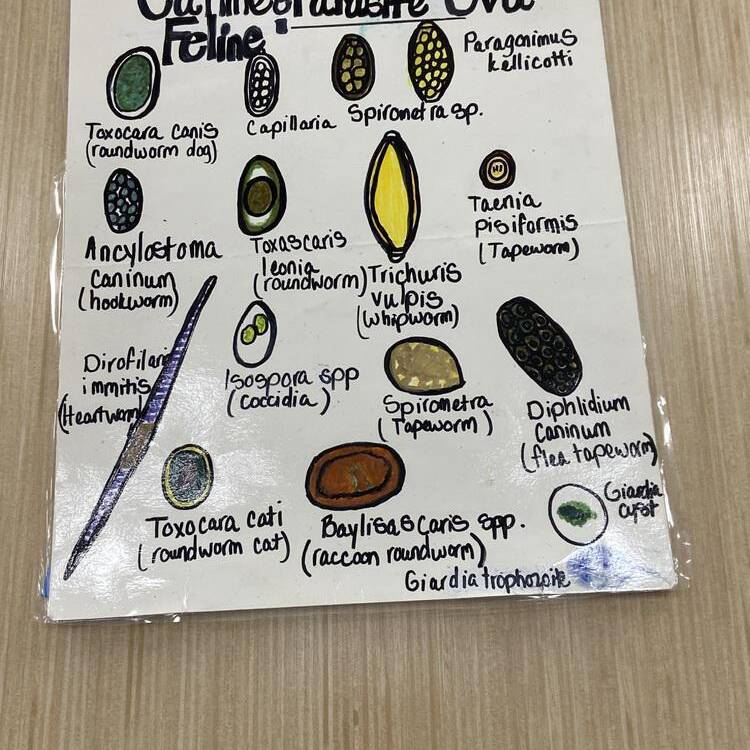 Feline:
Parasite Ova
Paragonimus
kellicotti
Toxocara canis
(roundworm dog)
Capillaria
Spirometra sp.
Ancylostoma
caninum
(hookworm)
Toxascaris
leonia
(roundworm)
Trichuris
vulpis
(whipworm)
Taenia
pisiformis
(Tapeworm)
Dirofilari
immitis
(Heartworm)
Isospora spp
(coccidia)
Spirometra
(Tapeworm)
Diphlidium
caninum
(flea tapeworm)
Toxocara cati
(roundworm cat)
Baylisascaris spp.
(raccoon roundworm)
Giardia
cyst
Giardia trophozoite